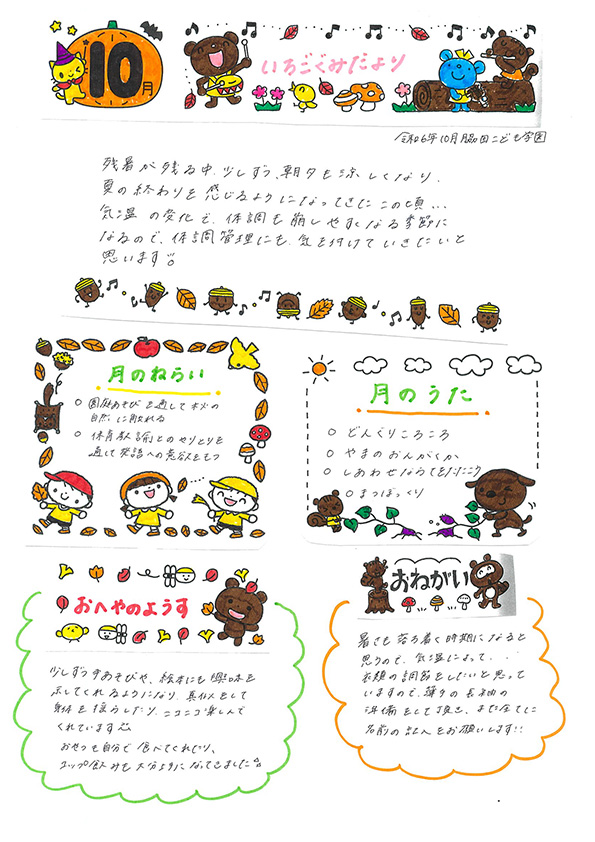 10月
いちごぐみだより
令和6年10月脇田こども学園
残暑が残る中、少しずつ、朝夕も涼しくなり、
夏の終わりを感じるようになってきたこの頃...
気温の変化で、体調も崩しやすくなる季節に
なるので、体調管理にも、気を付けていきたいと
思います。
月のねらい
○ 園庭あそびを通して秋の
自然に触れる
○ 保育教諭とのやりとりを
通して発語への意欲をもつ
月のうた
○ どんぐりころころ
○ やまのおんがくか
○ しあわせならてをたたこう
○ まつぼっくり
おへやのようす
少しずつ手あそびや、絵本にも興味を
示してくれるようになり、真似をして
身体を揺らしたり、ニコニコ楽しんで
くれています
おやつも自分で食べてくれたり、
コップ飲みも大分上手になってきました。
おねがい
暑さも落ち着く時期になると
思うので、気温によって、..
衣類の調節をしたいと思って
いますので、薄手の長袖の
準備をして頂き、また全てに
名前の記入をお願いします!!